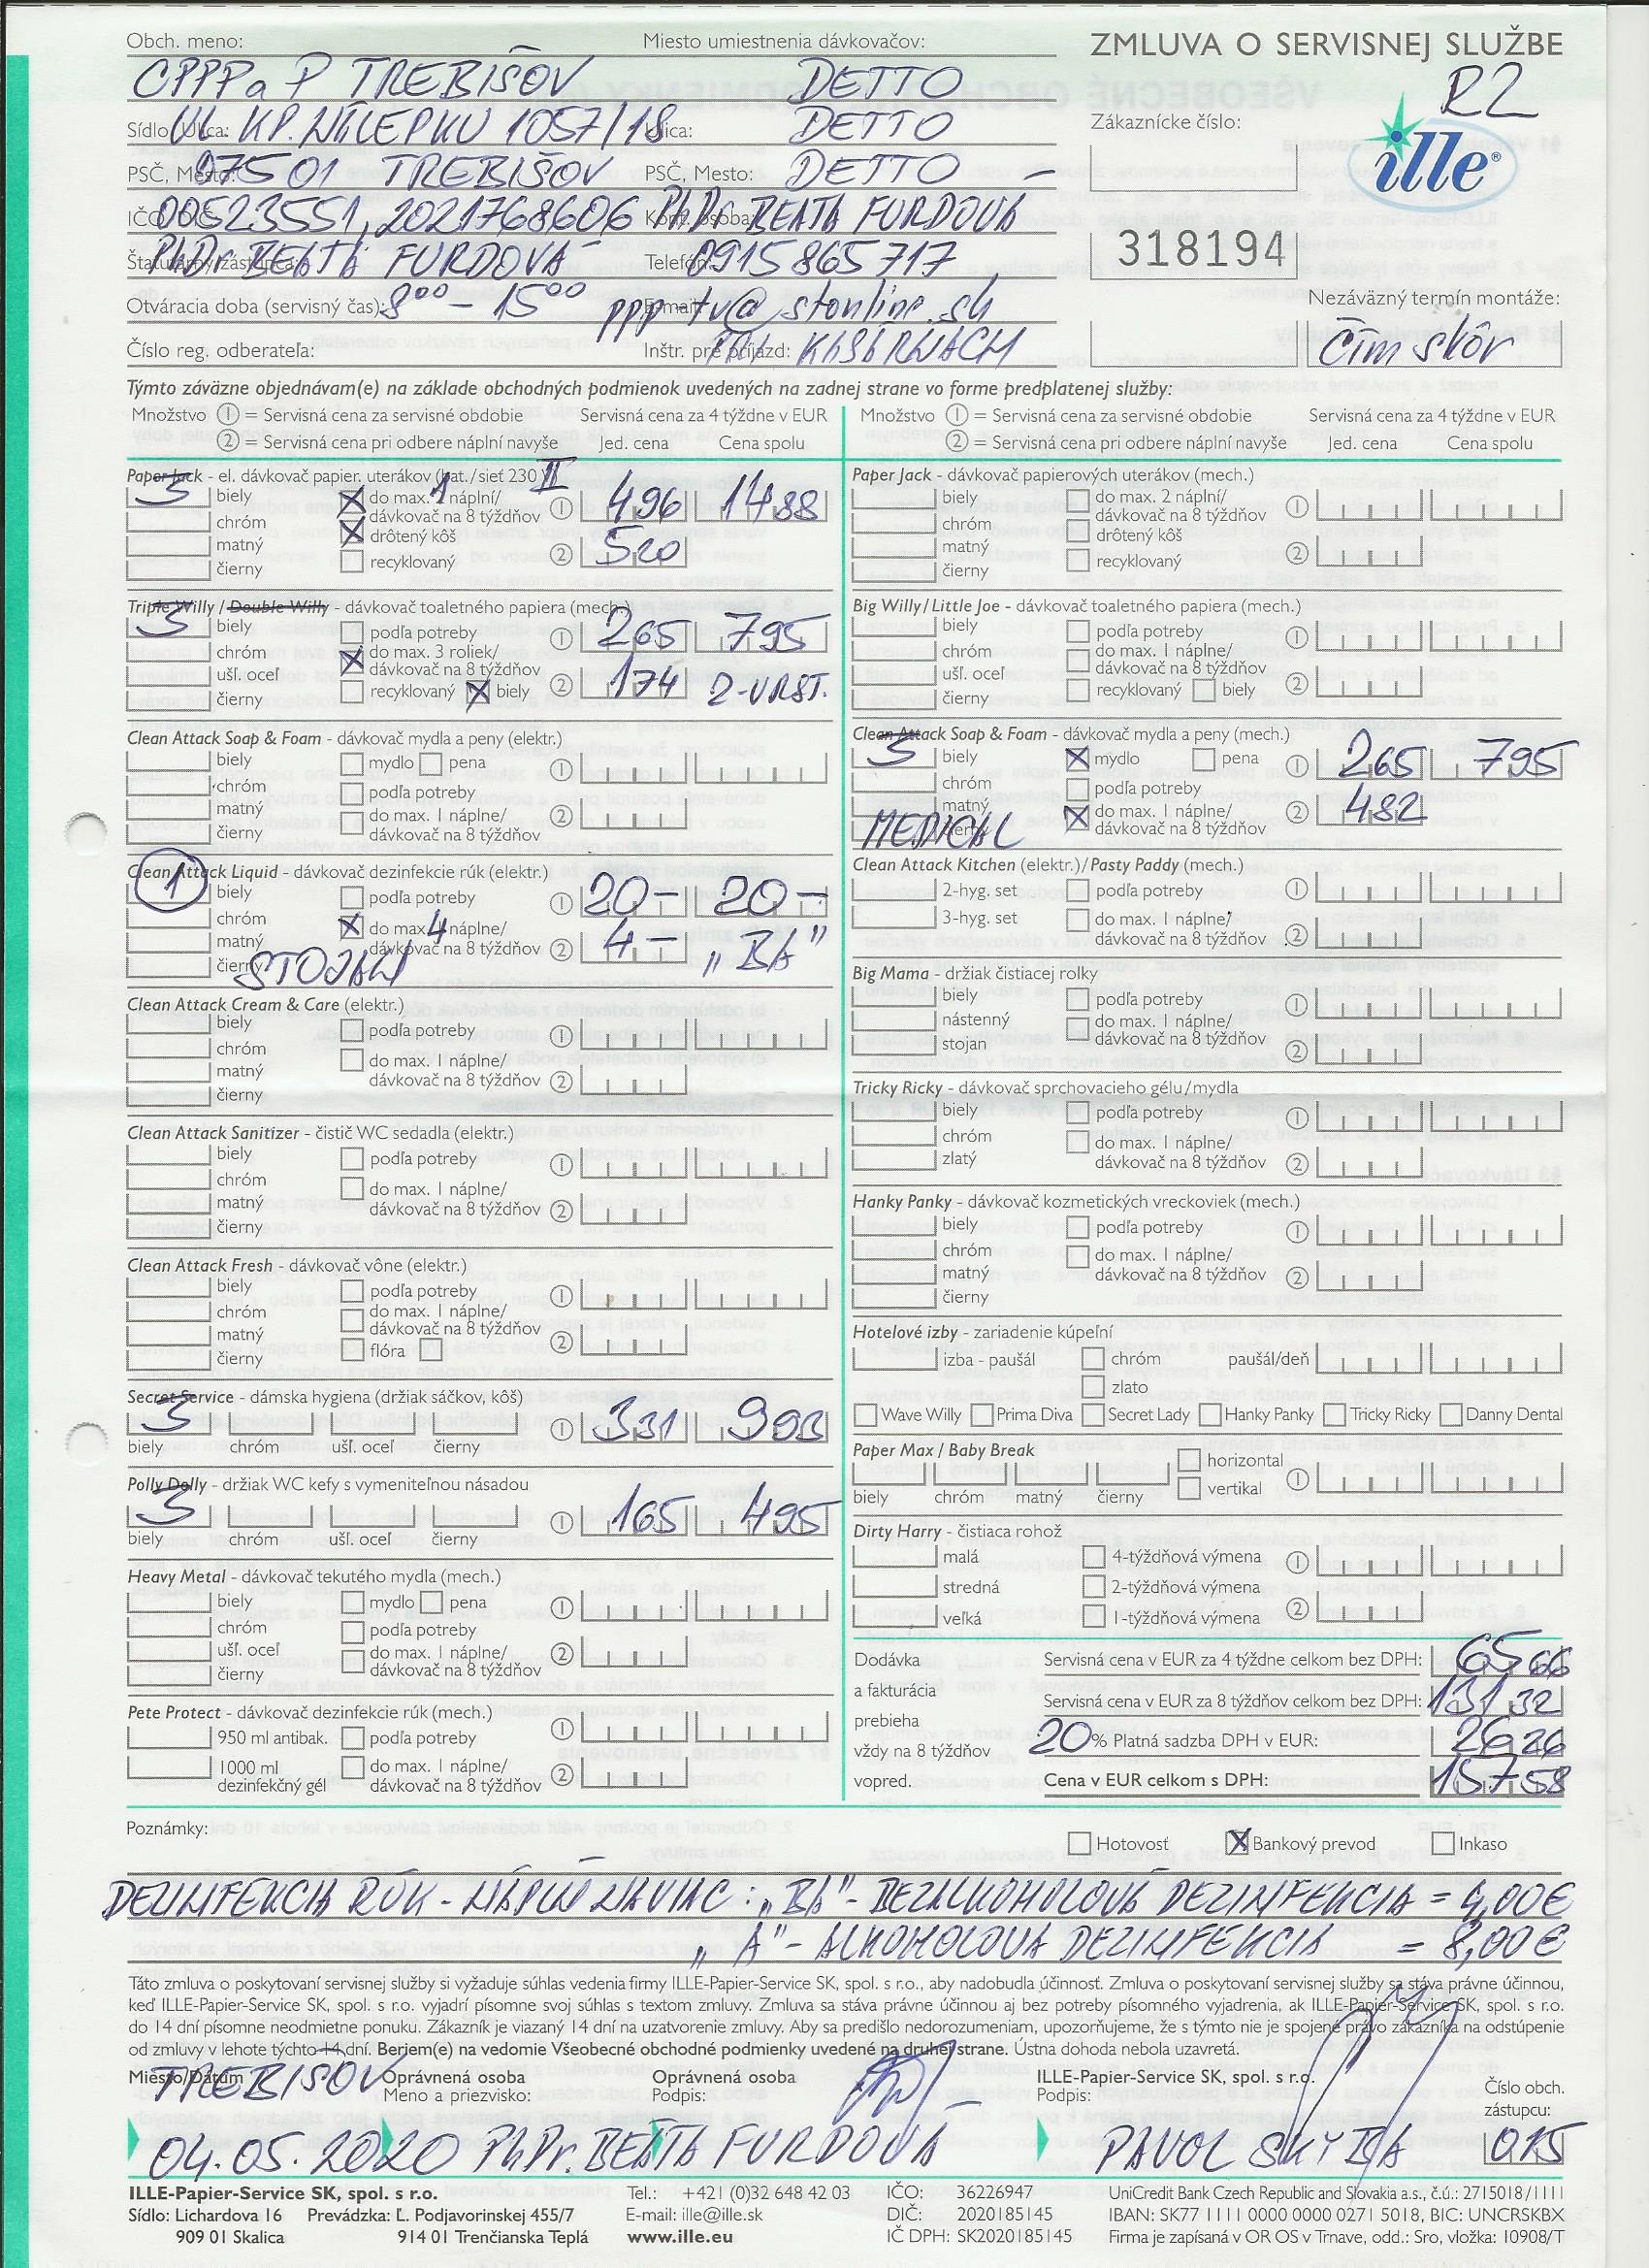 Obch. meno: CPPPaP TREBIŠOV
Miesto umiestnenia dávkovačov: DETTO
ZMLUVA O SERVISNEJ SLUŽBE
R2
Sídlo, Ulica: UL. KP. NÁLEPKU 1057/18
Ulica: DETTO
Zákaznícke číslo:
ille®
PSČ, Mesto: 07501 TREBIŠOV
PSČ, Mesto: DETTO
IČO, 00523551, 2021768606
Kont. osoba: PhDr. BEATA FURDOVÁ
318194
Štatutárny zástupca: PhDr. BEATA FURDOVÁ
Telefón: 0915865717
Otváracia doba (servisný čas): 8⁰⁰ - 15⁰⁰
E-mail: ppp-tv@stonline.sk
Nezáväzný termín montáže:
Čím skôr
Číslo reg. odberateľa:
Inštr. pre príjazd:
Týmto záväzne objednávam(e) na základe obchodných podmienok uvedených na zadnej strane vo forme predplatenej služby:
Množstvo ① = Servisná cena za servisné obdobie Servisná cena za 4 týždne v EUR
② = Servisná cena pri odbere náplní navyše Jed. cena Cena spolu
Paper Jack - el. dávkovač papier. uterákov (bat./sieť 230 V) II
3 biely X do max. 1 náplní/ ① 4 96 14 88
dávkovač na 8 týždňov
chróm X drôtený kôš
matný recyklovaný ② 5 20
čierny
Triple Willy / Double Willy - dávkovač toaletného papiera (mech.)
3 biely podľa potreby ① 2 65 7 95
chróm X do max. 3 roliek/
ušľ. oceľ dávkovač na 8 týždňov
čierny recyklovaný X biely ② 1 74 2-VRST.
Clean Attack Soap & Foam - dávkovač mydla a peny (elektr.)
biely mydlo pena ①
chróm podľa potreby
matný do max. 1 náplne/ ②
čierny dávkovač na 8 týždňov
Clean Attack Liquid - dávkovač dezinfekcie rúk (elektr.)
1 biely podľa potreby ① 20 - 20 -
chróm X do max. 4 náplne/
matný dávkovač na 8 týždňov ② 4 - "BA"
čierny STOJAN
Clean Attack Cream & Care (elektr.)
biely podľa potreby ①
chróm
matný do max. 1 náplne/
čierny dávkovač na 8 týždňov ②
Clean Attack Sanitizer - čistič WC sedadla (elektr.)
biely podľa potreby ①
chróm
matný do max. 1 náplne/
čierny dávkovač na 8 týždňov ②
Clean Attack Fresh - dávkovač vône (elektr.)
biely podľa potreby ①
chróm do max. 1 náplne/
matný dávkovač na 8 týždňov ②
čierny flóra
Secret Service - dámska hygiena (držiak sáčkov, kôš)
3 ① 3 31 9 93
biely chróm ušľ. oceľ čierny
Polly Dolly - držiak WC kefy s vymeniteľnou násadou
3 ① 1 65 4 95
biely chróm ušľ. oceľ čierny
Heavy Metal - dávkovač tekutého mydla (mech.)
biely mydlo pena ①
chróm podľa potreby
ušľ. oceľ do max. 1 náplne/ ②
čierny dávkovač na 8 týždňov
Pete Protect - dávkovač dezinfekcie rúk (mech.)
950 ml antibak. podľa potreby ①
1000 ml do max. 1 náplne/
dezinfekčný gél dávkovač na 8 týždňov ②
Množstvo ① = Servisná cena za servisné obdobie Servisná cena za 4 týždne v EUR
② = Servisná cena pri odbere náplní navyše Jed. cena Cena spolu
Paper Jack - dávkovač papierových uterákov (mech.)
biely do max. 2 náplní/ ①
dávkovač na 8 týždňov
chróm drôtený kôš
matný recyklovaný ②
čierny
Big Willy/Little Joe - dávkovač toaletného papiera (mech.)
biely podľa potreby ①
chróm do max. 1 náplne/
ušľ. oceľ dávkovač na 8 týždňov
čierny recyklovaný biely ②
Clean Attack Soap & Foam - dávkovač mydla a peny (mech.)
3 biely X mydlo pena ① 2 65 7 95
chróm podľa potreby
matný X do max. 1 náplne/ ② 4 82
čierny dávkovač na 8 týždňov
MEDICAL
Clean Attack Kitchen (elektr.)/Pasty Paddy (mech.)
2-hyg. set podľa potreby ①
3-hyg. set do max. 1 náplne/
dávkovač na 8 týždňov ②
Big Mama - držiak čistiacej rolky
biely podľa potreby ①
nástenný do max. 1 náplne/
stojan dávkovač na 8 týždňov ②
Tricky Ricky - dávkovač sprchovacieho gélu/mydla
biely podľa potreby ①
chróm do max. 1 náplne/
zlatý dávkovač na 8 týždňov ②
Hanky Panky - dávkovač kozmetických vreckoviek (mech.)
biely podľa potreby ①
chróm do max. 1 náplne/
matný dávkovač na 8 týždňov ②
čierny
Hotelové izby - zariadenie kúpeľní
izba - paušál chróm paušál/deň
zlato
Wave Willy Prima Diva Secret Lady Hanky Panky Tricky Ricky Danny Dental
Paper Max / Baby Break horizontal
vertikal ①
biely chróm matný čierny
Dirty Harry - čistiaca rohož
malá 4-týždňová výmena ①
stredná 2-týždňová výmena
veľká 1-týždňová výmena ②
Dodávka Servisná cena v EUR za 4 týždne celkom bez DPH: 65 66
a fakturácia Servisná cena v EUR za 8 týždňov celkom bez DPH: 131 32
prebieha
vždy na 8 týždňov 20 % Platná sadzba DPH v EUR: 26 26
vopred. Cena v EUR celkom s DPH: 157 58
Poznámky: Hotovosť X Bankový prevod Inkaso
DEZINFEKCIA RÚK - NÁPLŇ NAVIAC: "BA" - BEZALKOHOLOVÁ DEZINFEKCIA = 4,00€
"A" - ALKOHOLOVÁ DEZINFEKCIA = 8,00€
Táto zmluva o poskytovaní servisnej služby si vyžaduje súhlas vedenia firmy ILLE-Papier-Service SK, spol. s r.o., aby nadobudla účinnosť. Zmluva o poskytovaní servisnej služby sa stáva právne účinnou,
keď ILLE-Papier-Service SK, spol. s r.o. vyjadrí písomne svoj súhlas s textom zmluvy. Zmluva sa stáva právne účinnou aj bez potreby písomného vyjadrenia, ak ILLE-Papier-Service SK, spol. s r.o.
do 14 dní písomne neodmietne ponuku. Zákazník je viazaný 14 dní na uzatvorenie zmluvy. Aby sa predišlo nedorozumeniam, upozorňujeme, že s týmto nie je spojené právo zákazníka na odstúpenie
od zmluvy v lehote týchto 14 dní. Berjem(e) na vedomie Všeobecné obchodné podmienky uvedené na druhej strane. Ústna dohoda nebola uzavretá.
Miesto/Dátum TREBIŠOV
Oprávnená osoba Meno a priezvisko:
Oprávnená osoba Podpis:
ILLE-Papier-Service SK, spol. s r.o. Podpis:
Číslo obch. zástupcu:
04.05.2020 PhDr. BEATA FURDOVÁ PAVOL SKYBA 015
ILLE-Papier-Service SK, spol. s r.o. Tel.: +421 (0)32 648 42 03 IČO: 36226947 UniCredit Bank Czech Republic and Slovakia a.s., č.ú.: 2715018/1111
Sídlo: Lichardova 16 Prevádzka: Ľ. Podjavorinskej 455/7 E-mail: ille@ille.sk DIČ: 2020185145 IBAN: SK77 1111 0000 0000 0271 5018, BIC: UNCRSKBX
909 01 Skalica 914 01 Trenčianska Teplá www.ille.eu IČ DPH: SK2020185145 Firma je zapísaná v OR OS v Trnave, odd.: Sro, vložka: 10908/T